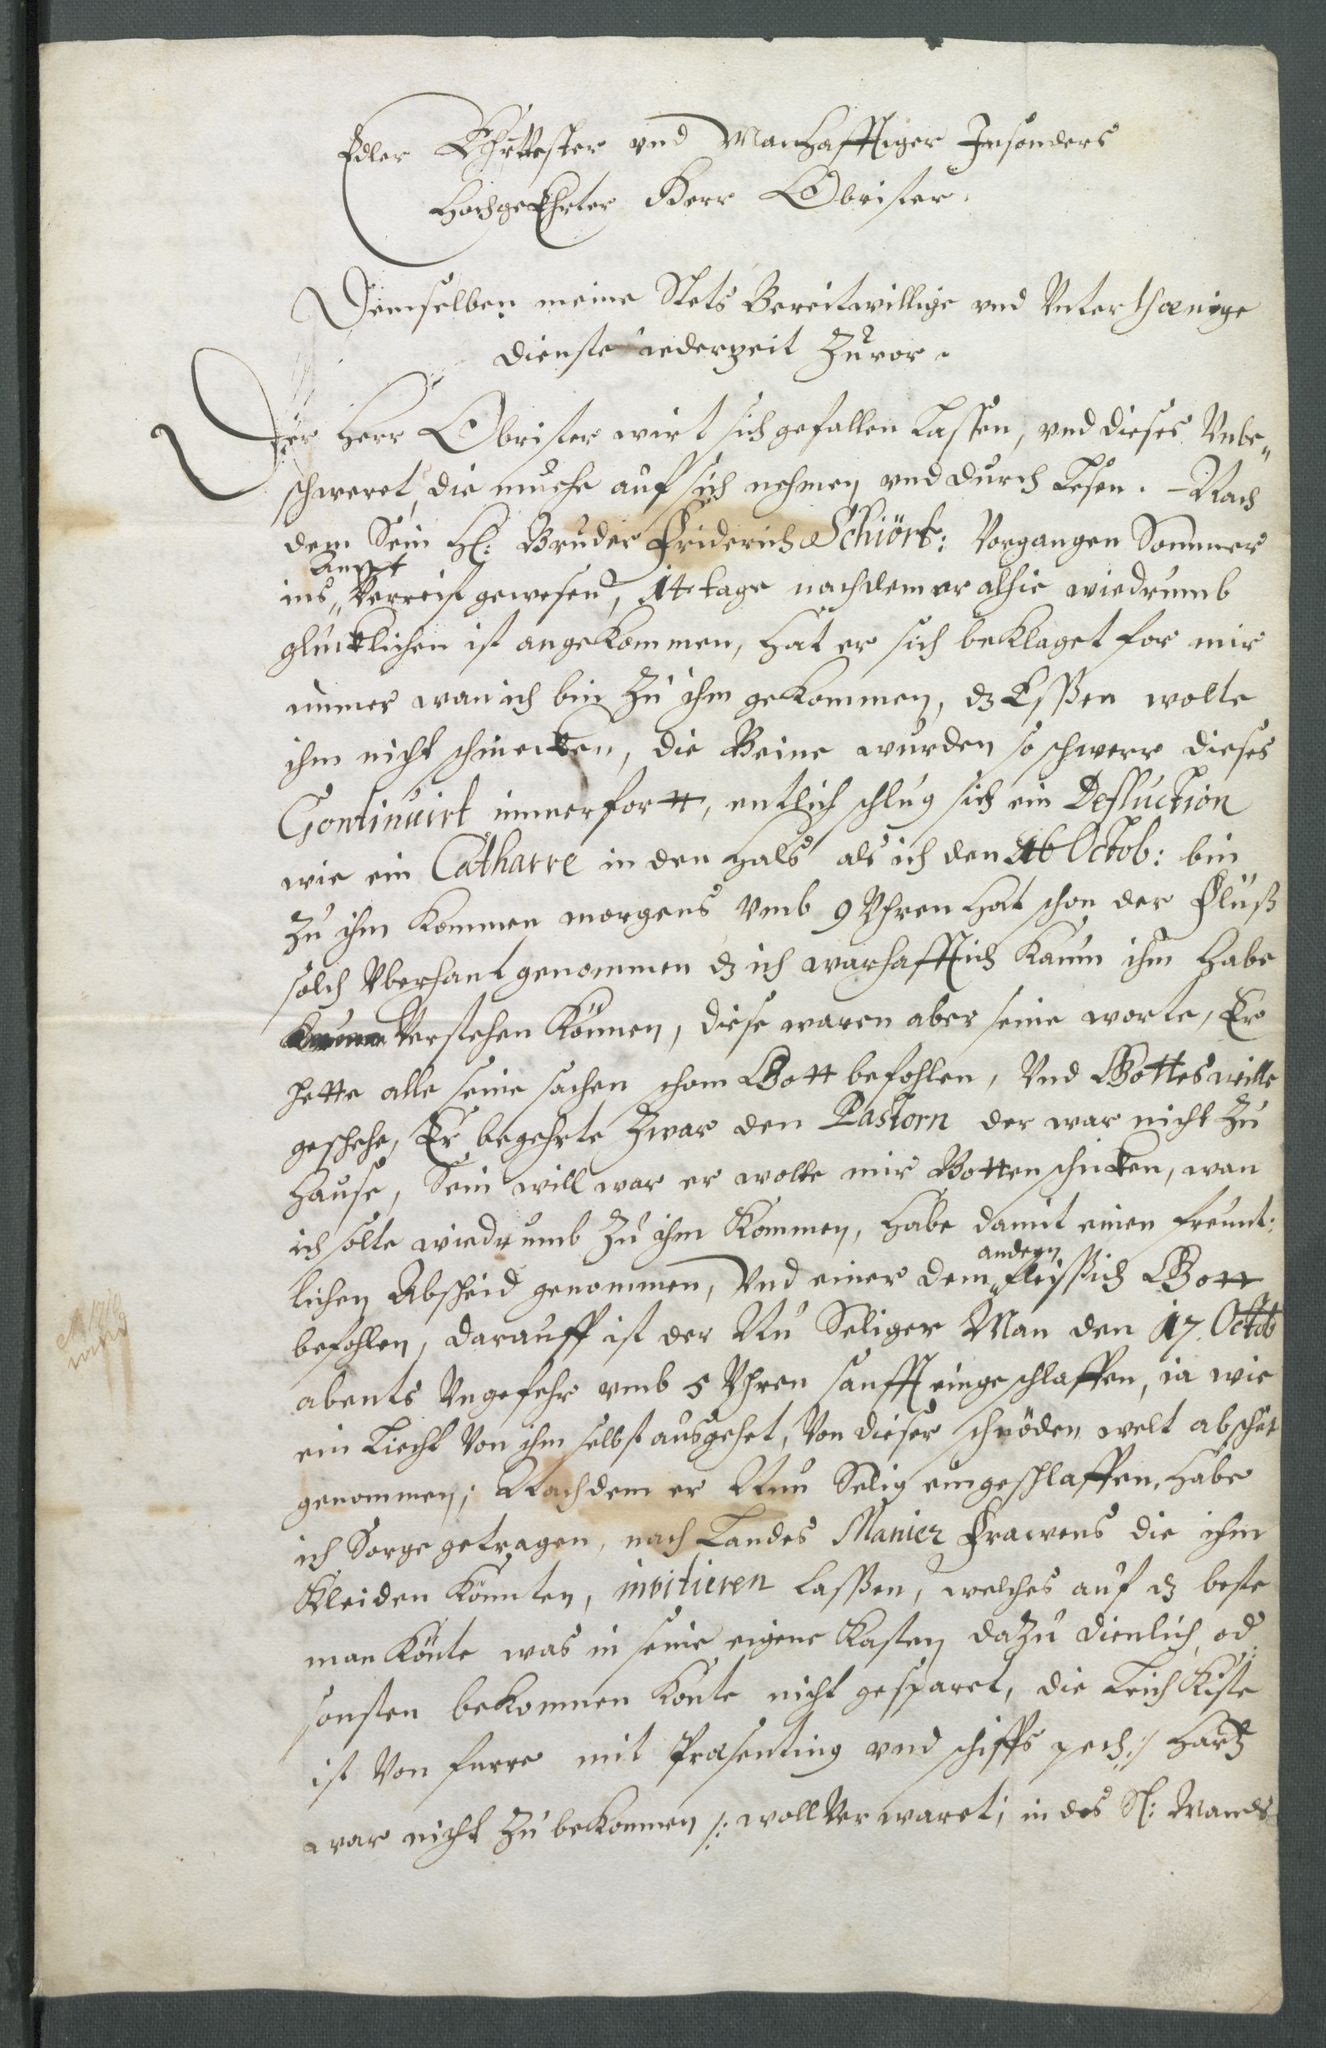 Edler Ehrvester vnd Manhafftiger Insonders
HochgeEhrter Herr Obrister.
Demselben meine Stets Bereitwillige vnd Vnterthænige
dienste iederzeit Zuvor.
Der Herr Obrister wirt sich gefallen Lassen, vnd dieses Vnbe„
schweret, die muehe auf sich nehmen vnd durch Lesen. Nach
dem Sein H: Bruder Friderich Schiört: Vorgangen Sommer
ins „ Verreist gewesen, 14 tage nachdem er alhie wiedrumb
glücklichen ist angekommen, hat er sich beklaget for mir
immer wan ich bin Zu ihm gekommen, dz Essen wolte
ihm nicht schmecken, die Beine wurden so schwerr dieses
Continuirt immerfortt, entlich schlug sich ein Defluction
wie ein Catharre in den Hals als ich den 16 Octob: bin
Zu ihm kommen morgens vmb 9 Vhren hat schon der Fluß
solch Vberhant genommen dz ich warhafftich kaum ihm habe
Verstehen können, diese waren aber seine worte, Er
hette alle seine sachen schom Gott befohlen, Vnd Gottes wille
geschehe, Er begehrte Zwar den Pastorn der war nicht Zu
Hause, Sein will war er wolte mir Botten schicken, wan
ich solte wiedrumb Zu ihm kommen, habe damit einen freunt:
lichen Abscheid genommen, Vnd einer dem „ andern fleissich Gott
befohlen, darauff ist der Nu Seliger Man den 17. Octob
abents Vngefehr vmb 5 Vhren sanfft eingeschlaffen, ia wie
ein Liecht Von ihm selbst ausgehet, Von dieser schnöden welt abscheit
genommen; Nachdem er Nun Selig eingeschlaffen, habe
ich Sorge getragen, nach Landes Manier Frawens die ihm
Kleiden könnten, invitieren lassen, welches auf dz beste
man könte was in seine eigene Kasten dazu dienlich od
sonsten bekommen konte nicht gesparet, die Leich Kiste
ist Von furre mit Præsenting vnd schiffs pech :/ Hartz
war nicht Zu bekommen /: woll Verwaret; in des Sl: Mands